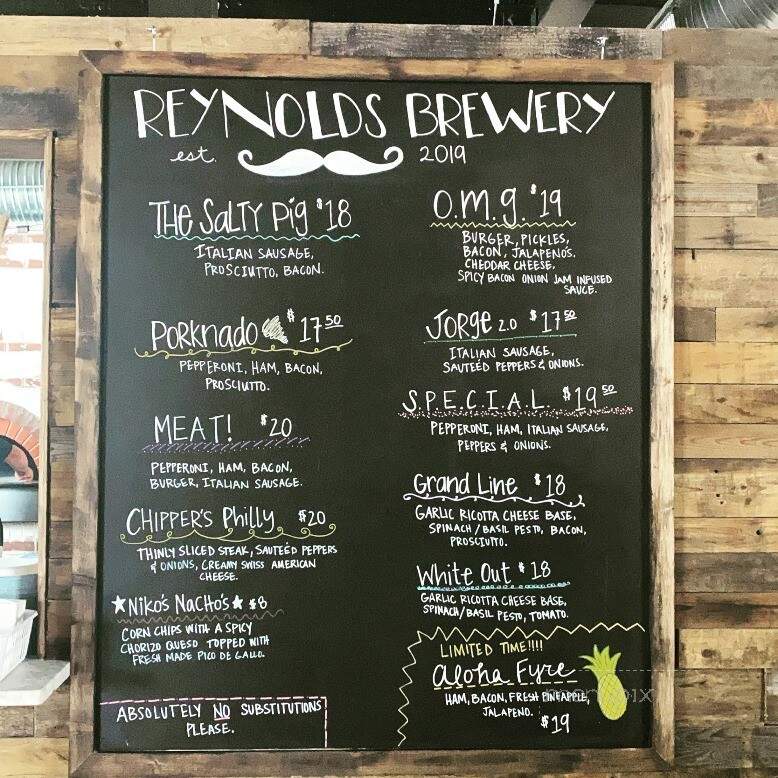 REYNOLDS BREWERY
est. 2019
THE SALTY PIG $18
ITALIAN SAUSAGE,
PROSCIUTTO, BACON.
PORKNADO $17 50
PEPPERONI, HAM, BACON,
PROSCIUTTO.
MEAT! $20
PEPPERONI, HAM, BACON,
BURGER, ITALIAN SAUSAGE.
CHIPPER'S Philly $20
THINLY SLICED STEAK, SAUTEÉD PEPPERS
& ONIONS, CREAMY SWISS AMERICAN
CHEESE.
★NIKO'S NACHO'S★ $8
CORN CHIPS WITH A SPICY
CHORIZO QUESO TOPPED WITH
FRESH MADE PICO DE GALLO.
ABSOLUTELY NO SUBSTITUTIONS
PLEASE.
O.M.G. $19
BURGER, PICKLES,
BACON, JALAPENO'S.
CHEDDAR CHEESE,
SPICY BACON ONION JAM INFUSED
SAUCE.
JORGE 2.0 $17 50
ITALIAN SAUSAGE,
SAUTEÉD PEPPERS & ONIONS.
S.P.E.C.I.A.L. $19 50
PEPPERONI, HAM, ITALIAN SAUSAGE,
PEPPERS & ONIONS.
Grand Line $18
GARLIC RICOTTA CHEESE BASE,
SPINACH / BASIL PESTO, BACON,
PROSCIUTTO.
White Out $18
GARLIC RICOTTA CHEESE BASE,
SPINACH/BASIL PESTO, TOMATO.
LIMITED TIME!!!!
Aloha Fyre
HAM, BACON, FRESH PINEAPPLE,
JALAPENO.
$19